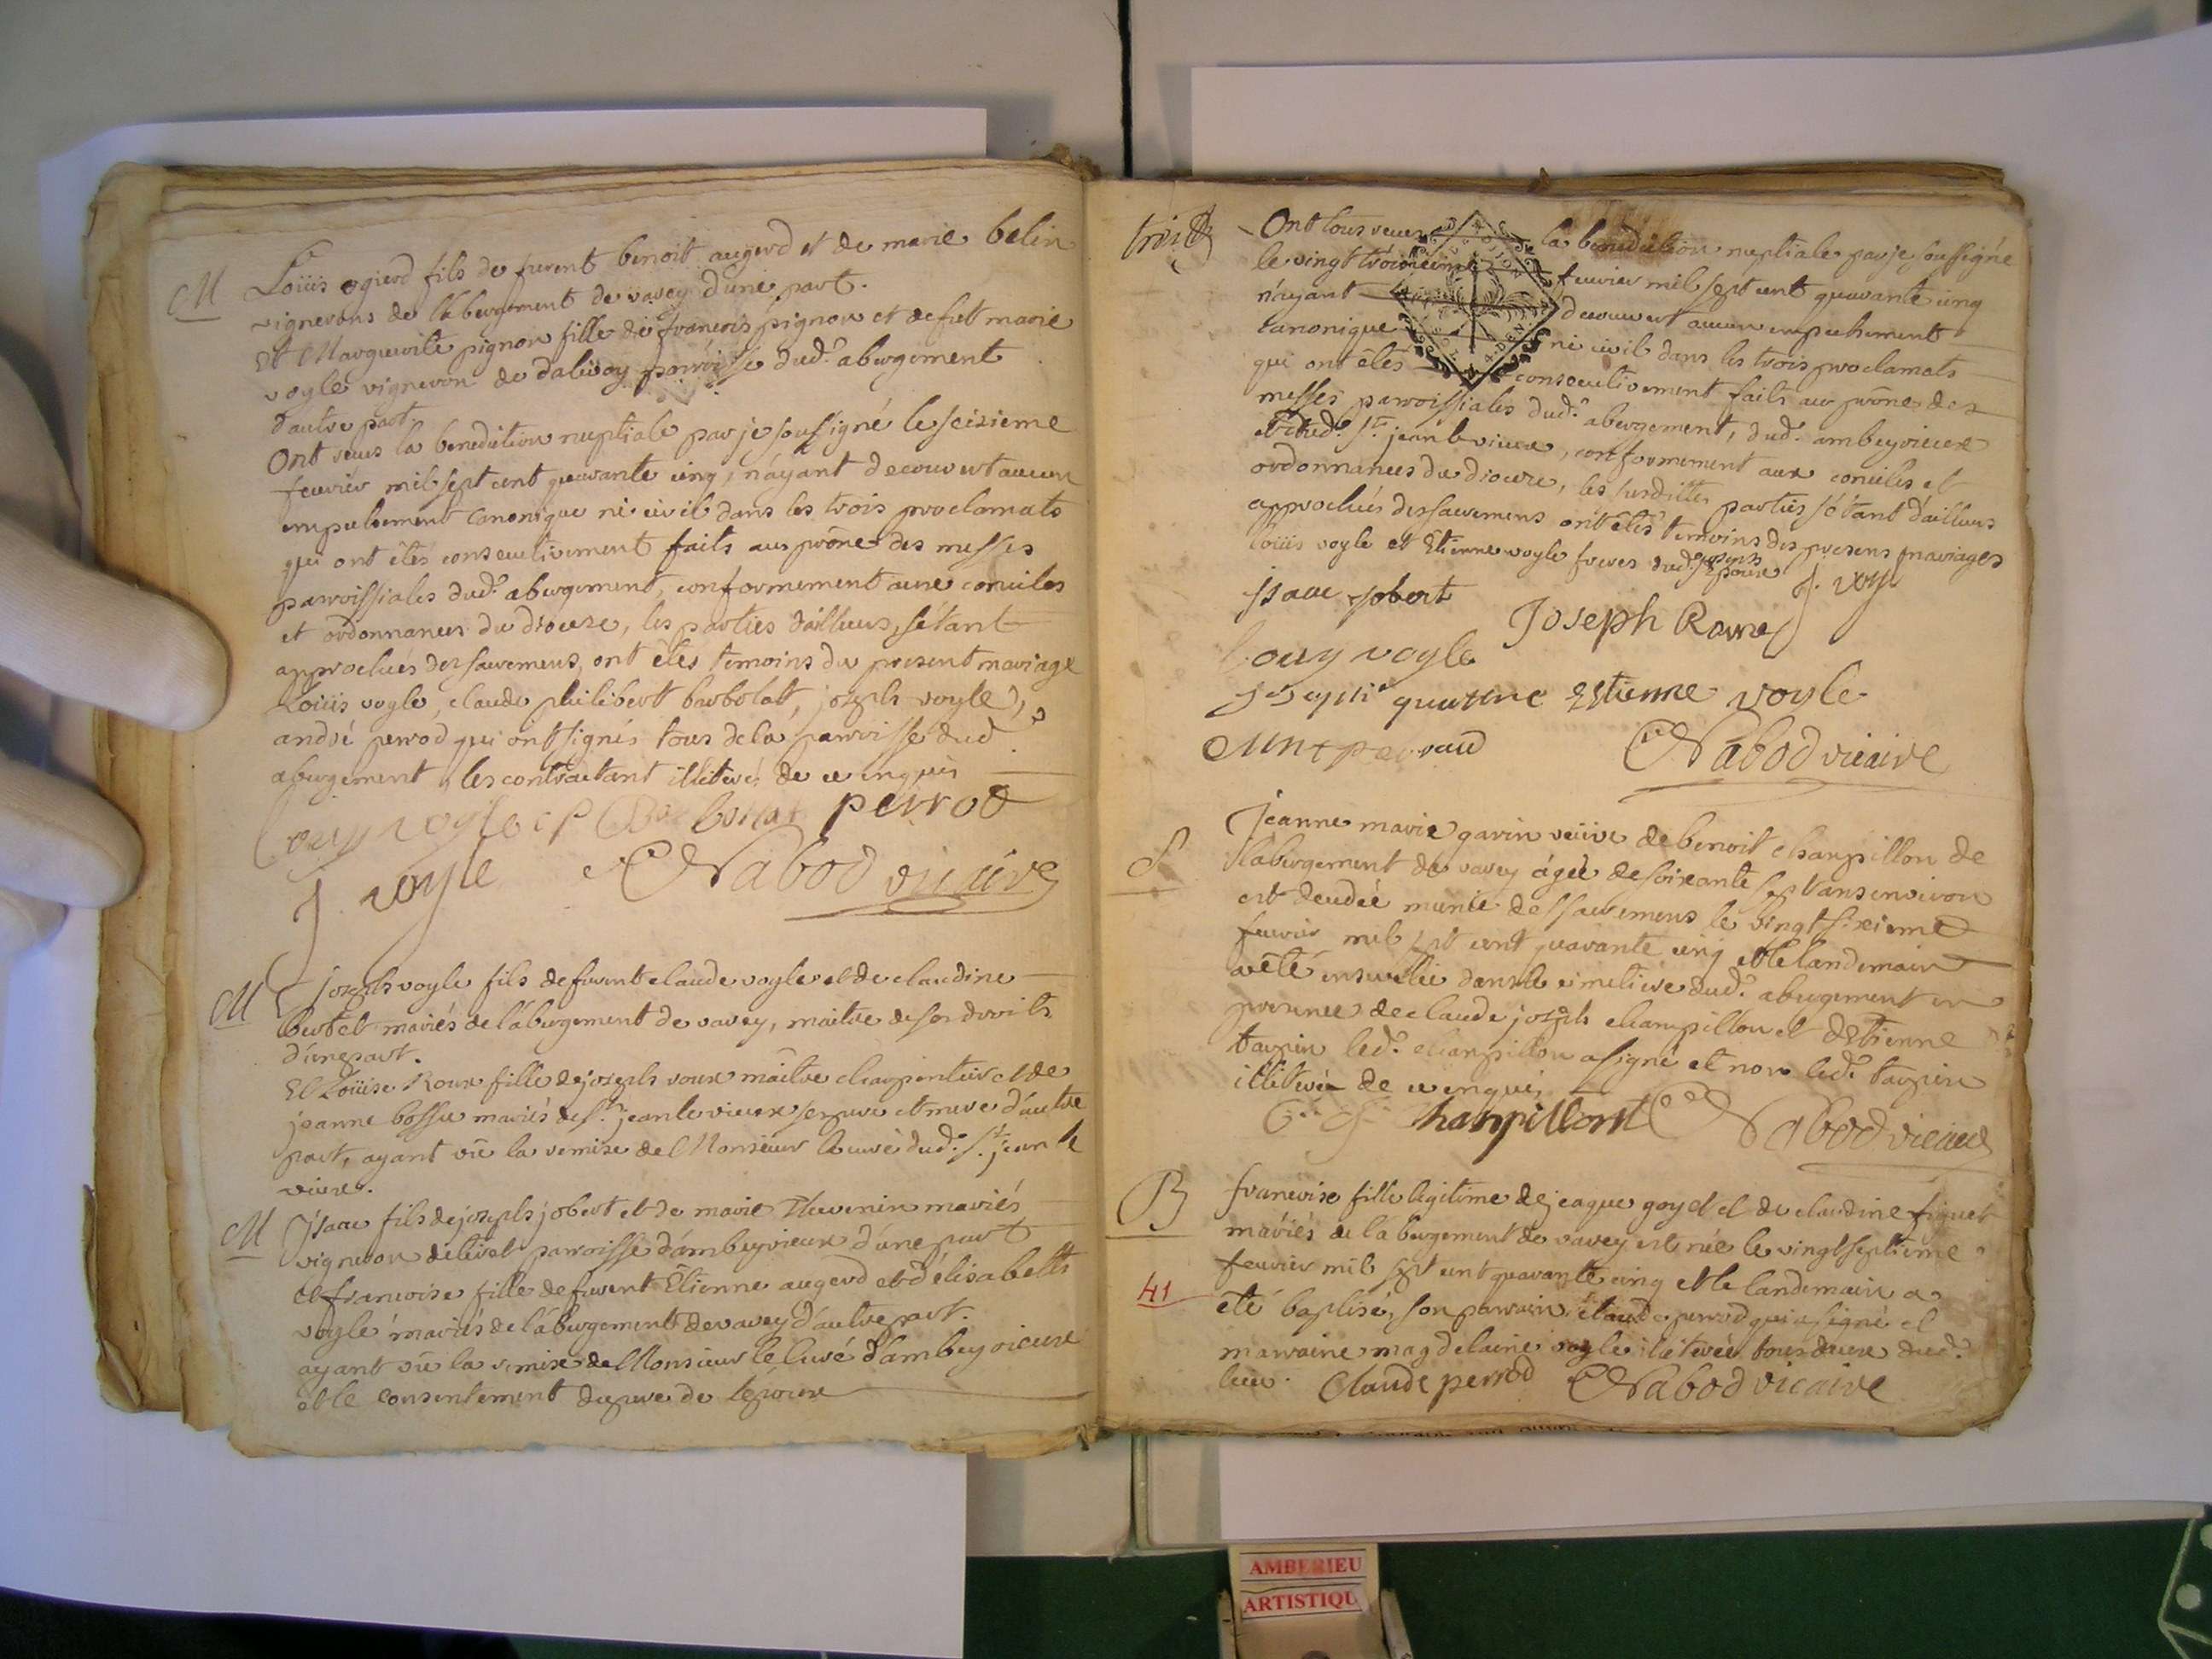 M Loüis ogierd fils de furent benoit augerd et de marie belin
vignerons de l'abergement de varey d'une part.
Et Marguerite pignon fille de francois pignon et de fut marie
vogle vigneron de dalivoy parroisse dud. abergement
d'autre part
Ont reçus la benediction nuptiale par je soussigné le seizieme
feuvrier mil sept cent quarante cinq, n'ayant decouvert aucun
empechement canonique ni civil dans les trois proclamats
qui ont étés consecutivement faits aux prône des messes
parroissiales dud. abergement, conformement aux conciles
et ordonnances du diocese, les parties d'ailleurs s'étant
approchées des sacremens, ont étés temoins du present mariage
Loüis vogle, claude philibert barbolat, joseph vogle,
andré perrod qui ont signés tous de la parroisse dud.
abergement, les contractant illiterés de ce enquis
Louy vogle perrod
J. vogle Nabod vicaire
M joseph vogle fils de furent claude vogle et de claudine
bertet mariés de l'abergement de varey, maitre de ses droits
d'une part.
Et Loüise Roux fille de joseph roux maitre charpentier et de
jeanne bossu mariés de St. jean le vieux ses pere et mere d'autre
part, ayant vû la remise de Monsieur le curé dud. St. jean le
vieux.
M Isaac fils de joseph jobert et de marie Thevenin mariés
vigneron de tiret parroisse d'ambeyrieux d'une part
et francoise fille de furent Etienne augerd et d'elisabeth
vogle mariés de l'abergement de varey d'autre part.
ayant vû la remise de Monsieur le Curé d'ambeyrieux
et le consentement du pere de l'epoux
Ont tous reçus la benediction nuptiale par je soussigné
le vingt troisieme feuvrier mil sept cent quarante cinq
n'ayant decouvert aucun empechement
canonique ni civil dans les trois proclamats
qui ont étés consecutivement faits aux prône des
messes parroissiales dud. abergement, dud. ambeyrieux
et dud. St. jean le vieux, conformement aux conciles et
ordonnances du diocese, les susdittes parties s'étant d'ailleurs
approchées des sacremens ont étés temoins des presens mariages
loüis vogle et Etienne vogle freres dud. joseph epoux
Isaac jobert Joseph Roux J. vogle
Louy vogle
Estienne vogle
Nabod vicaire
S Jeanne marie garin veüive de benoit champillon de
l'abergement de varey agée de soixante sept ans environ
est decedée munie des sacremens le vingt sixieme
feuvrier mil sept cent quarante cinq et le landemain
a été ensevelie dans le cimetiere dud. abergement en
presence de claude joseph champillon et d'Etienne
tarpin led. champillon a signé et non led. tarpin
illiteré de ce enquis
Champillont Nabod vicaire
B francoise fille legitime de jeaque goyet et de claudine figuet
mariés de l'abergement de varey est née le vingt septieme
feuvrier mil sept cent quarante cinq et le landemain a
41 eté baptisé, son parrain claude perrod qui a signé et
marraine magdelaine vogle illiterée tous deux dud.
lieu. Claude perrod Nabod vicaire
AMBERIEU
ARTISTIQU